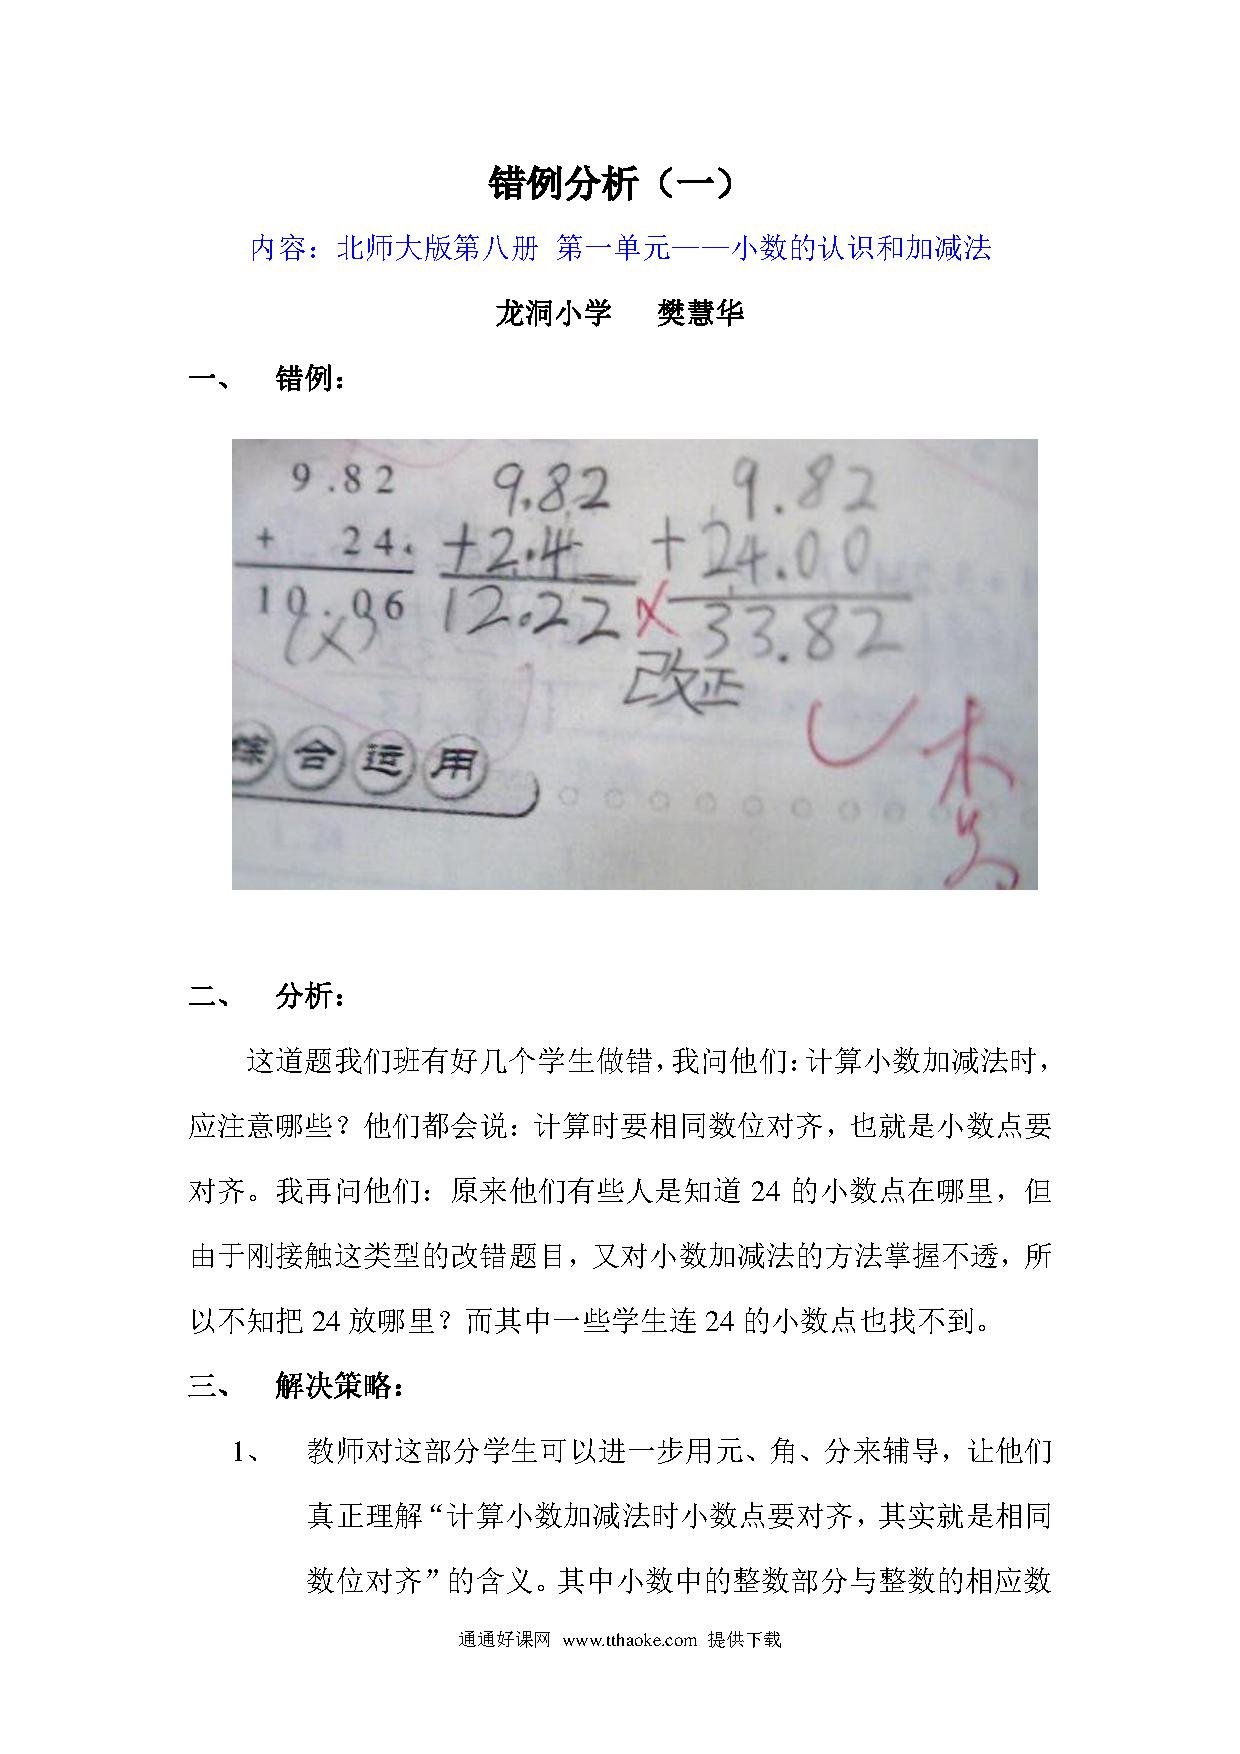 错例分析（一）
内容：北师大版第八册 第一单元——小数的认识和加减法
龙洞小学 樊慧华
一、 错例：
9.82 9.82 9.82
+ 24. +2.4 +24.00
10.06 12.22 × 33.82
(×) 改正
综合运用
二、 分析：
这道题我们班有好几个学生做错，我问他们：计算小数加减法时，
应注意哪些？他们都会说：计算时要相同数位对齐，也就是小数点要
对齐。我再问他们：原来他们有些人是知道 24 的小数点在哪里，但
由于刚接触这类型的改错题目，又对小数加减法的方法掌握不透，所
以不知把 24 放哪里？而其中一些学生连 24 的小数点也找不到。
三、 解决策略：
1、 教师对这部分学生可以进一步用元、角、分来辅导，让他们
真正理解“计算小数加减法时小数点要对齐，其实就是相同
数位对齐”的含义。其中小数中的整数部分与整数的相应数
通通好课网 www.tthaoke.com 提供下载